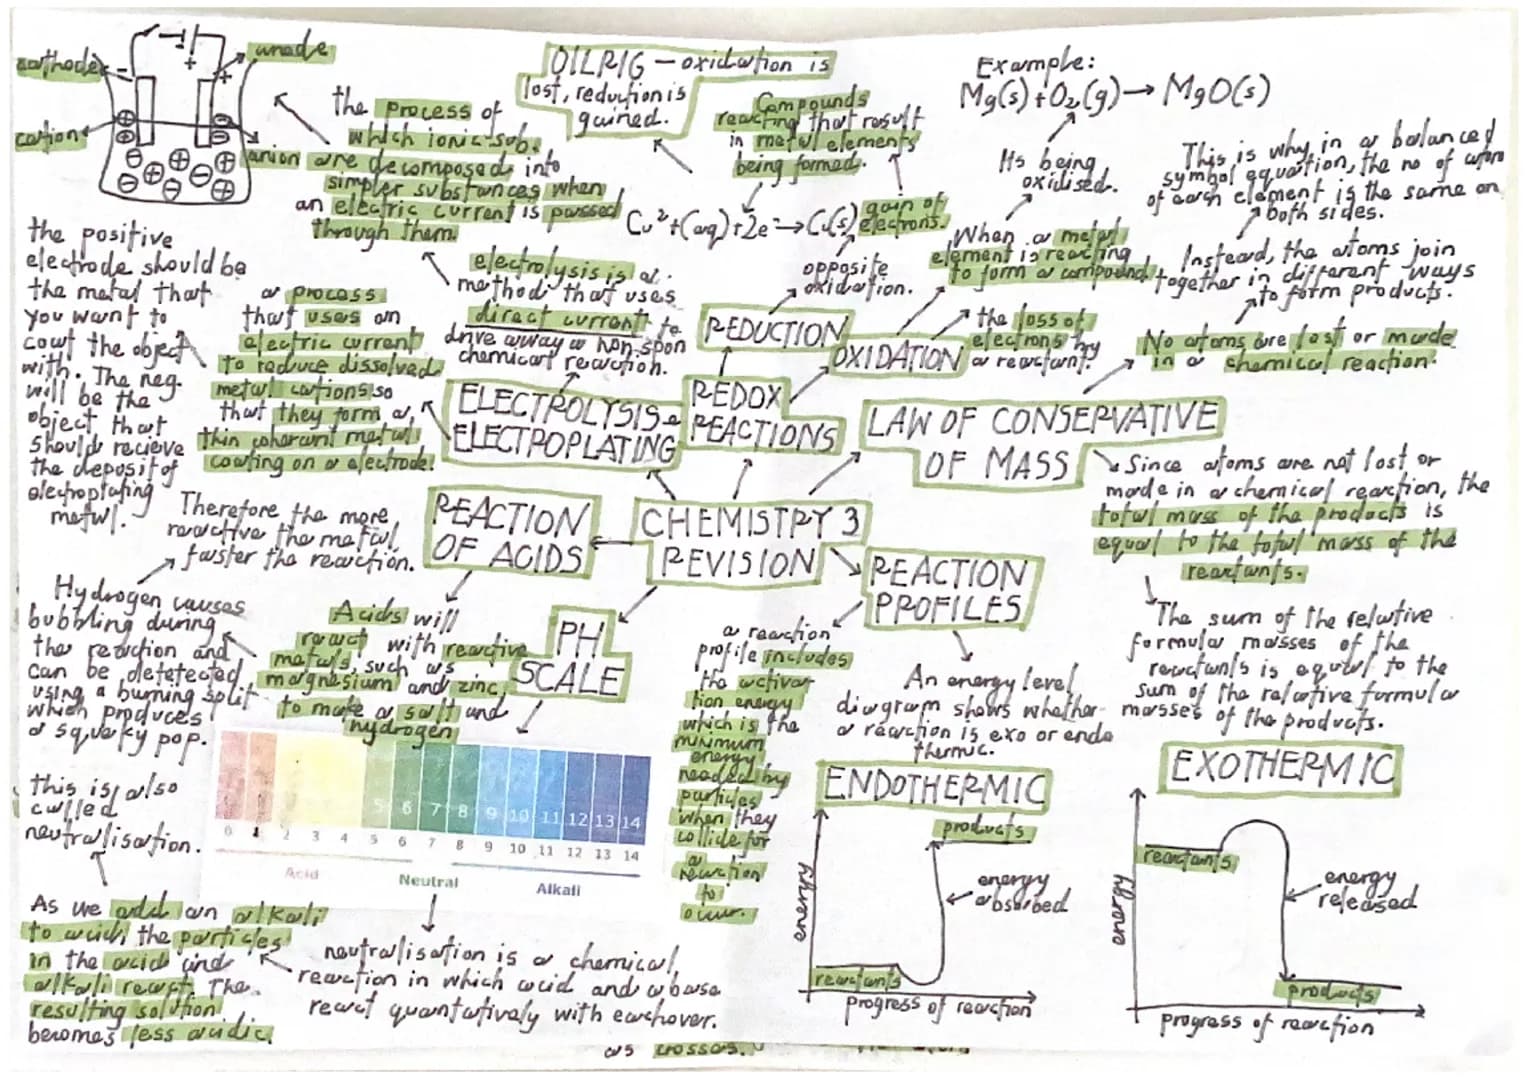 cathode
anode
cation
anion
- +
+
the process of
which ionic sub.
are decomposed into
simpler substances when
an electric current is passed
through them.
OILRIG - oxidation is
lost, reduction is
gained.
Compounds
reacting that result
in metal elements
being formed.
Cu²+(aq)+2e→Cu(s)
gain of
electrons.
opposite
oxidation.
Example:
Mg(s)+O₂(g)→MgO(s)
Its being
oxidised.
When a metal
element is reacting
to form a compound
This is why in a balanced
symbol equation, the no of atoms
of each element is the same on
both sides.
Instead, the atoms join
together in different ways
to form products.
No atoms are lost or made
in a chemical reaction.
the loss of
electrons by
a reactant.
the positive
electrode should be
the metal that
you want to
coat the object
with. The neg.
will be the
object that
should recieve
the deposit of
electroplating
metal.
a process
that uses an
electric current
to reduce dissolved
metal cations so
that they form a
thin coherant metal
coating on a electrode.
electrolysis is a
method that uses
direct current to
drive away a non-spon
chemical reaction.
REDUCTION
OXIDATION
ELECTROLYSIS &
ELECTROPLATING
REDOX
REACTIONS
LAW OF CONSERVATIVE
OF MASS
Since atoms are not lost or
made in a chemical reaction, the
total mass of the products is
equal to the total mass of the
reactants.
The sum of the relative
formular masses of the
reactants is equal to the
sum of the relative formular
masses of the products.
CHEMISTRY 3
REVISION
REACTION
OF ACIDS
Therefore the more
reactive the metal
faster the reaction.
Hydrogen causes
bubbling during
the reaction and
can be detetected
using a burning split
which produces
a squeaky pop.
Acids will
react with reactive
metals, such as
magnesium and zinc,
to make a salt and
hydrogen
PH
SCALE
REACTION
PROFILES
a reaction
profile includes
the activa-
tion energy
which is the
minimum
energy
needed by
particles
when they
collide for
a
reaction
to
occur.
An energy level
diagram shows whether
a reaction is exo or endo
thermic.
ENDOTHERMIC
products
energy
absorbed
reactants
energy
progress of reaction
EXOTHERMIC
reactants
energy
released
products
energy
progress of reaction
5 6 7 8 9 10 11 12 13 14
0 1 2 3 4 5 6 7 8 9 10 11 12 13 14
Acid
Neutral
Alkali
this is also
called
neutralisation.
As we add an alkali
to acid, the particles
in the acid and
alkali react. The
resulting solution
becomes less acidic.
neutralisation is a chemical
reaction in which acid and a base
react quantatively with eachover.
as crosses.